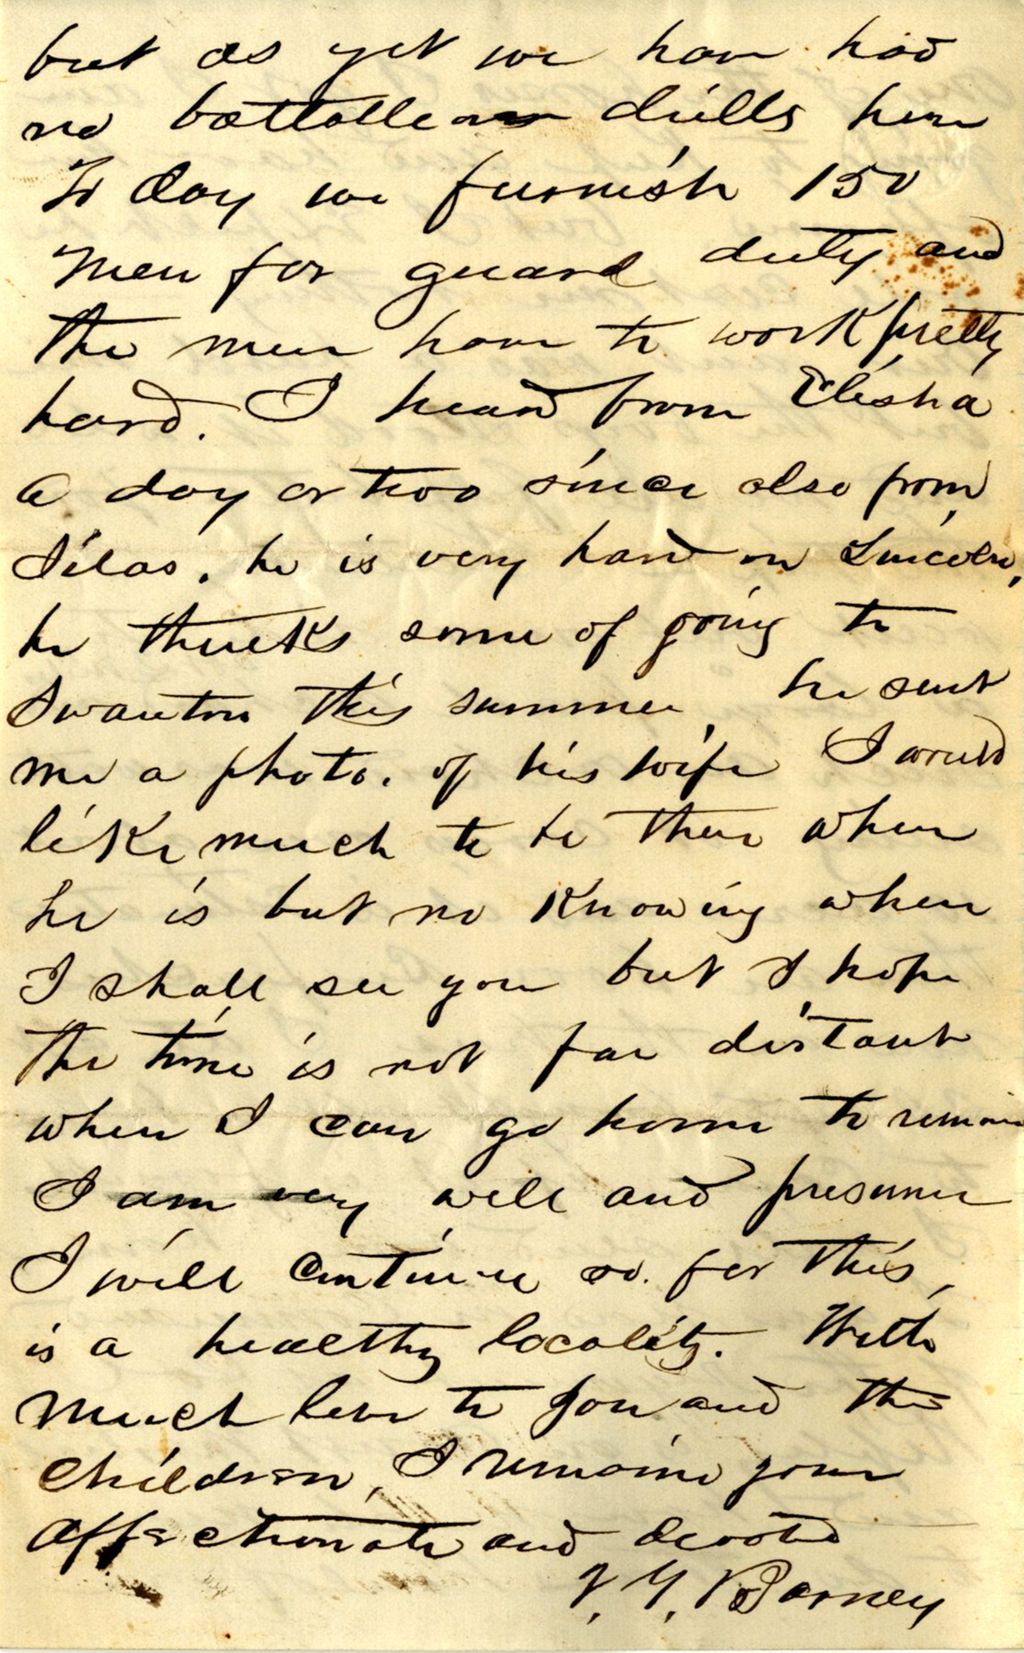 but as yet we have had
no battalleon drills here
To day we furnish 150
men for guard duty and
the men have to work pretty
hard. I heard from Elisha
a day or two since also from
Silas. he is very hard on Lincoln,
he thinks some of going to
Swanton this summer, he sent
me a photo. of his wife I would
like much to be there when
he is but no knowing when
I shall see you but I hope
the time is not far distant
when I can go home to remain
I am very well and presume
I will continue so. for this,
is a healthy locality. With
much love to you and the
children, I remain your
affectionate and devoted
V. G. Barney